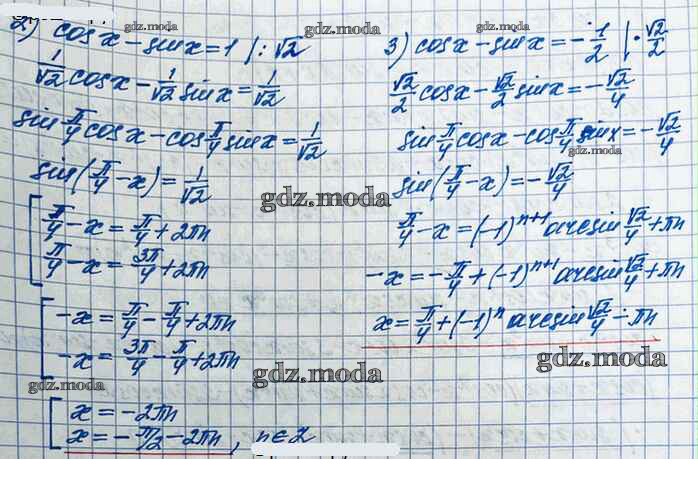 2) cosx - sinx = 1 |: √2
1/√2 cosx - 1/√2 sinx = 1/√2
sin π/4 cosx - cos π/4 sinx = 1/√2
sin(π/4 - x) = 1/√2
[ π/4 - x = π/4 + 2πn
π/4 - x = 3π/4 + 2πn
[ -x = π/4 - π/4 + 2πn
-x = 3π/4 - π/4 + 2πn
[ x = -2πn
x = -π/2 - 2πn, n∈Z
3) cosx - sinx = -1/2 |· √2/2
√2/2 cosx - √2/2 sinx = -√2/4
sin π/4 cosx - cos π/4 sinx = -√2/4
sin(π/4 - x) = -√2/4
π/4 - x = (-1)ⁿ⁺¹ arcsin √2/4 + πn
-x = -π/4 + (-1)ⁿ⁺¹ arcsin √2/4 + πn
x = π/4 + (-1)ⁿ arcsin √2/4 - πn
gdz.moda
gdz.moda
gdz.moda
gdz.moda
gdz.moda
gdz.moda
gdz.moda